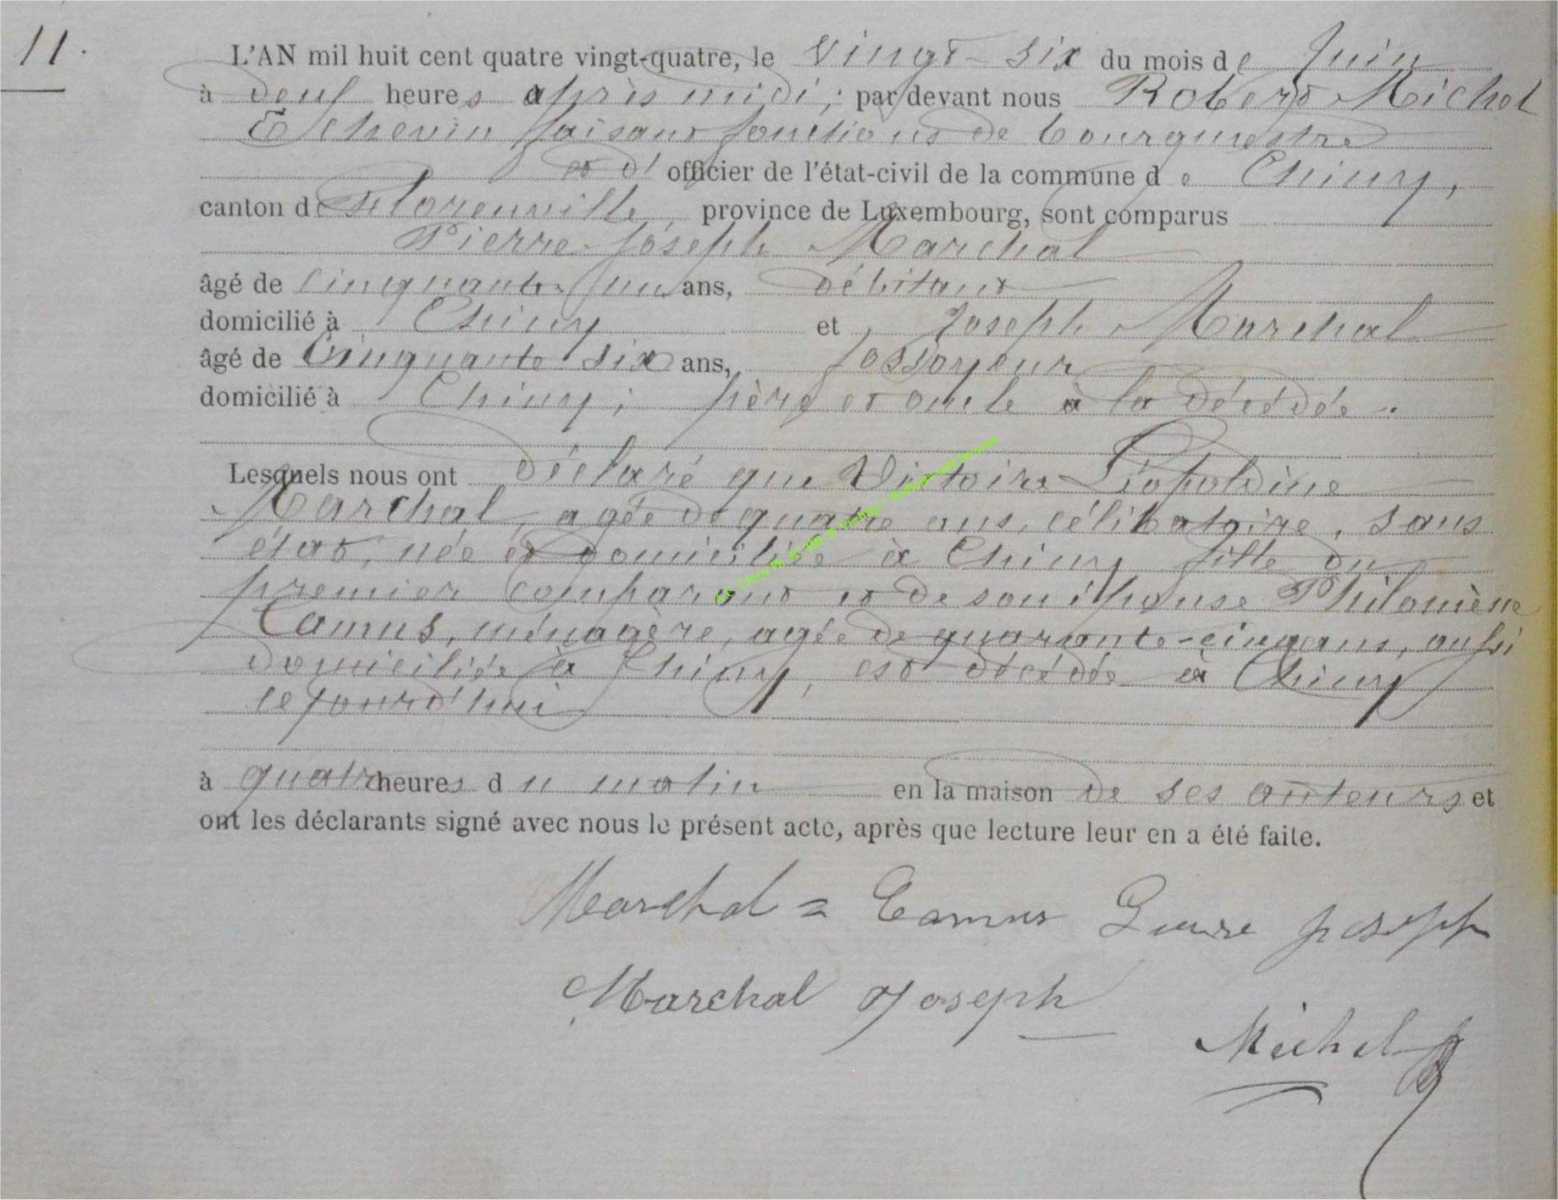 11.
L'AN mil huit cent quatre vingt-quatre, le vingt-six du mois de Juin
à deux heures après midi, par devant nous Robert Michel
Echevin faisant fonctions de bourgmestre
et d'officier de l'état-civil de la commune de Chiny,
canton de Florenville, province de Luxembourg, sont comparus
Pierre-Joseph Marchal
âgé de cinquante un ans, débitant
domicilié à Chiny et Joseph Marchal
âgé de Cinquante six ans, fossoyeur
domicilié à Chiny; père et oncle à la décédée.
Lesquels nous ont déclaré que Victoire Léopoldine
Marchal, agée de quatre ans, célibataire, sans
état, née et domiciliée à Chiny fille du
premier comparant et de son épouse Philomène
Camus, ménagère, agée de quarante-cinq ans, aussi
domiciliée à Chiny, est décédée à Chiny
cejourd'hui
à quatre heures du matin en la maison de ses auteurs et
ont les déclarants signé avec nous le présent acte, après que lecture leur en a été faite.
Marchal = Camus Joseph
Marchal Joseph
Michel